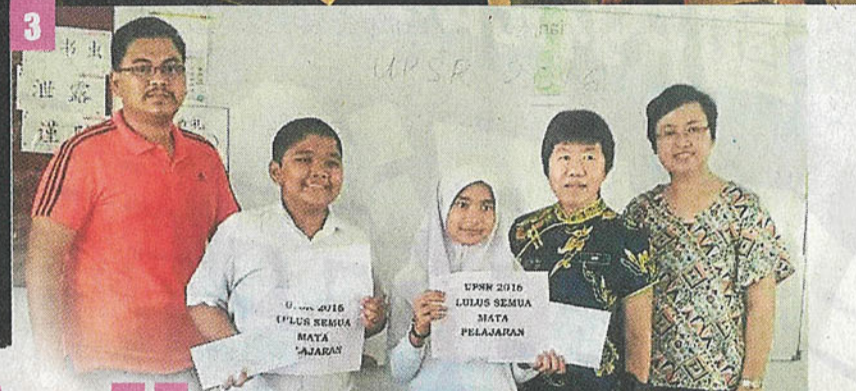 3
书虫
泄露
谨
UPSR 2016
UPSR 2016
LULUS SEMUA
MATA
PELAJARAN
UPSR 2016
LULUS SEMUA
MATA
PELAJARAN